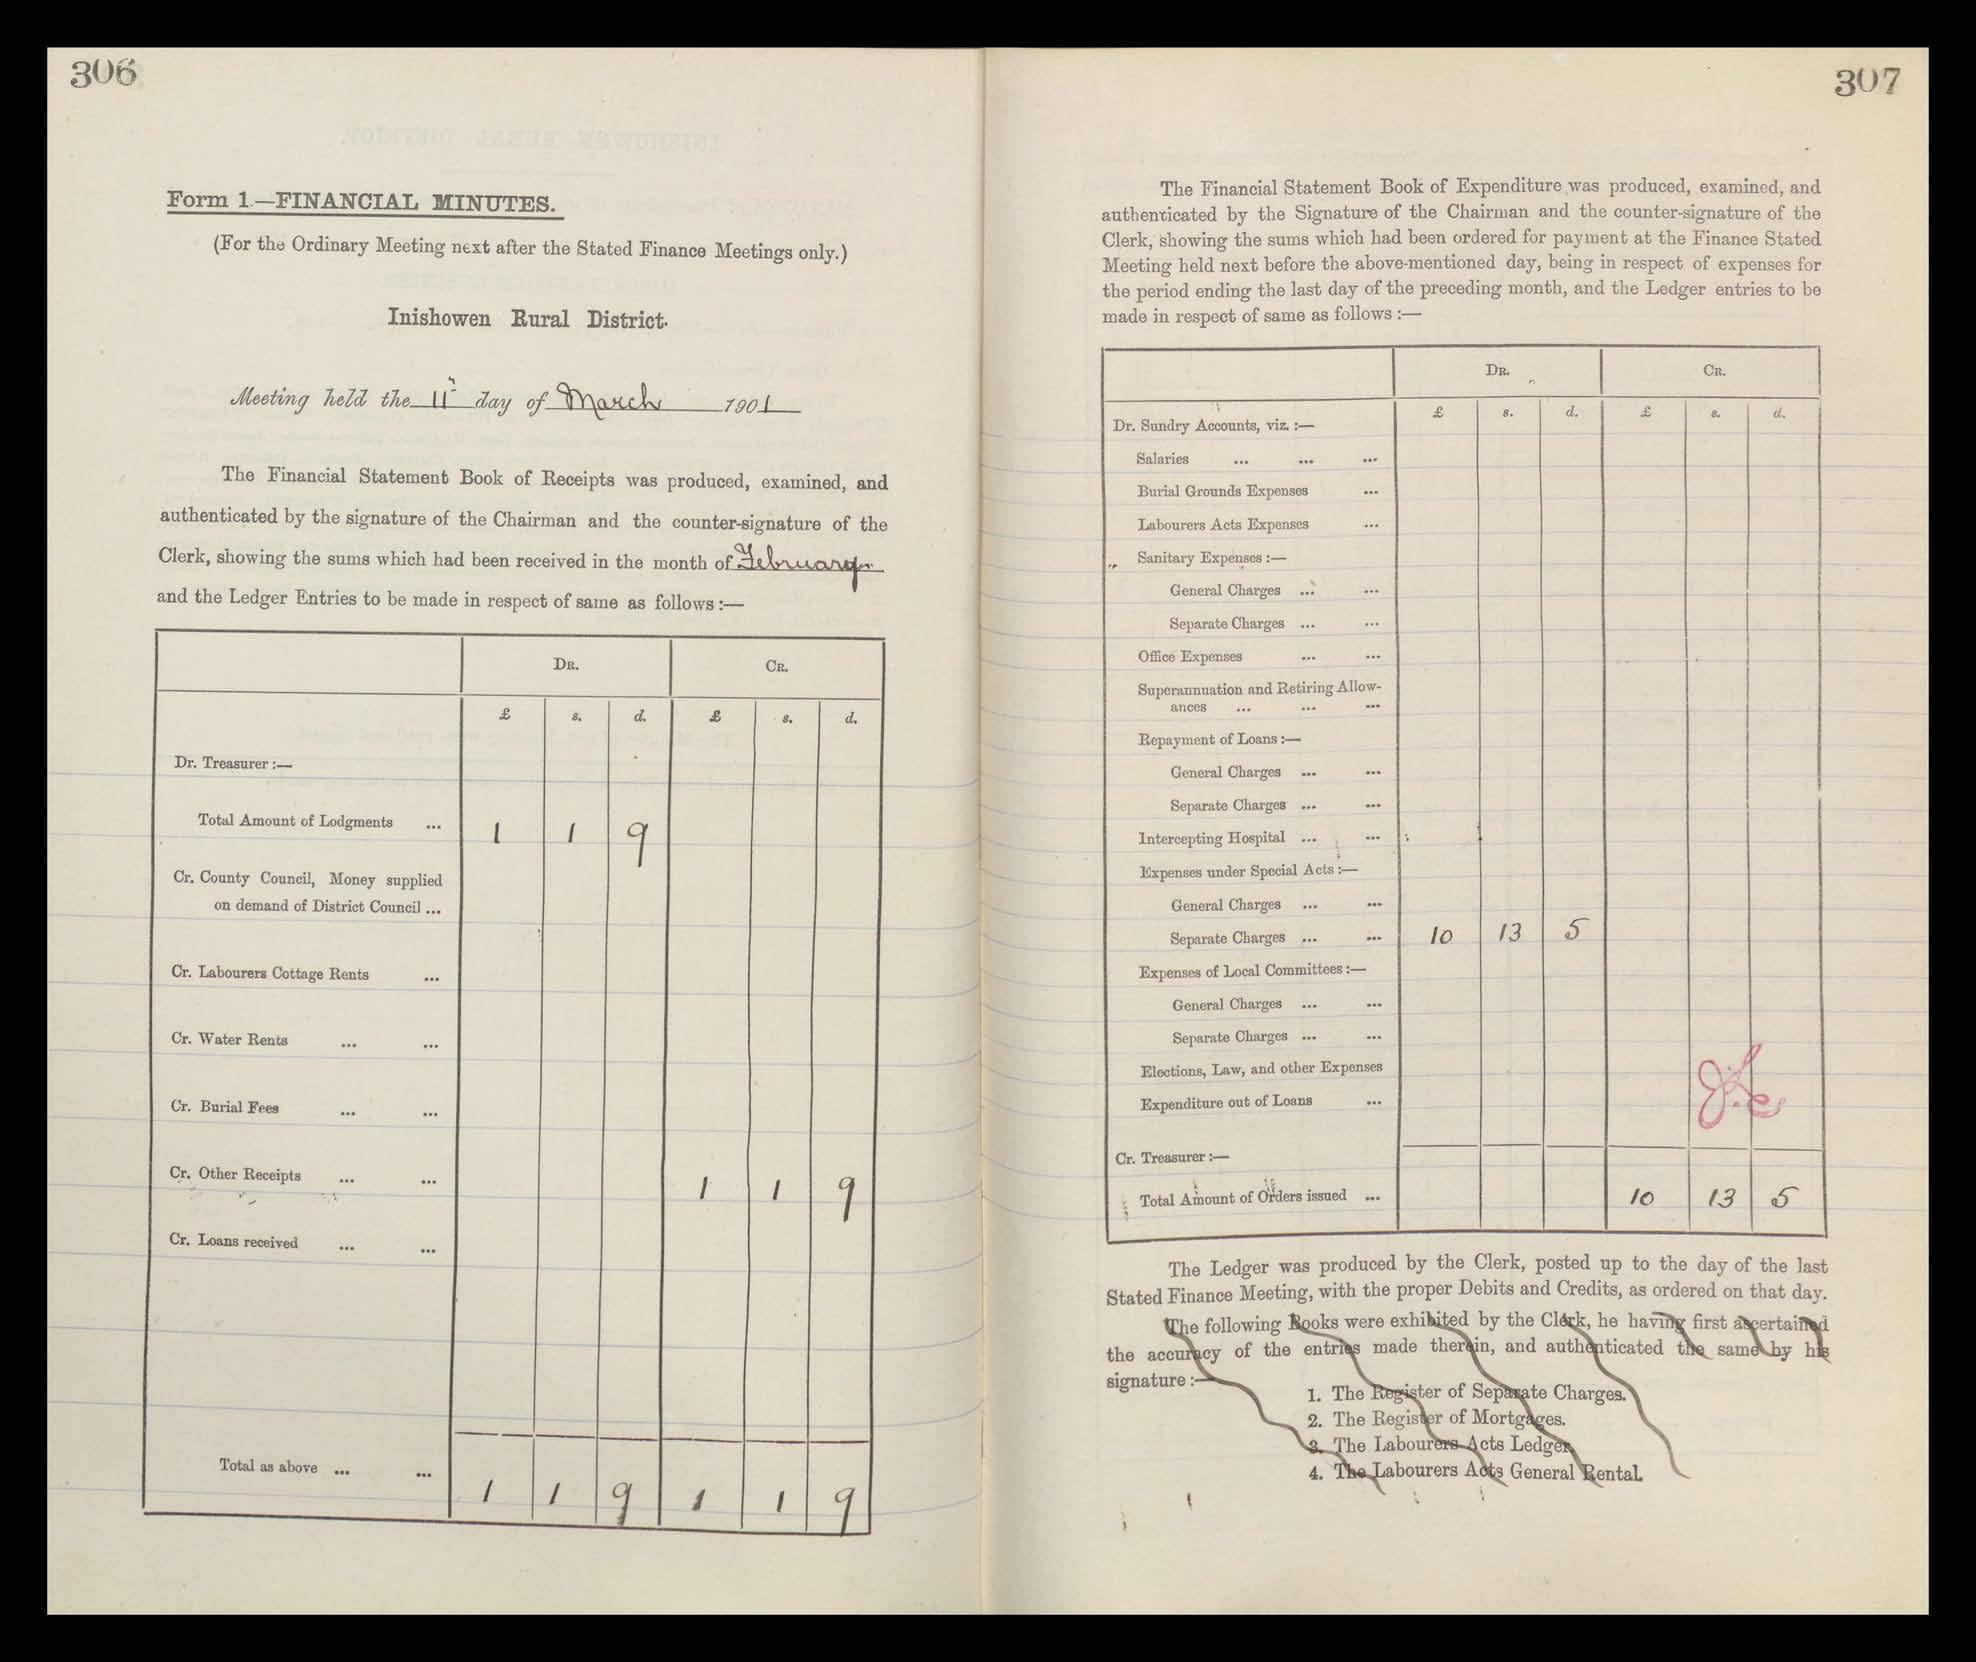 306
Form 1.—FINANCIAL MINUTES.
(For the Ordinary Meeting next after the Stated Finance Meetings only.)
Inishowen Rural District.
Meeting held the 11th day of March 1901
The Financial Statement Book of Receipts was produced, examined, and
authenticated by the signature of the Chairman and the counter-signature of the
Clerk, showing the sums which had been received in the month of February
and the Ledger Entries to be made in respect of same as follows :—
DR. CR.
£ s. d. £ s. d.
Dr. Treasurer :—
Total Amount of Lodgments ... 1 1 9
Cr. County Council, Money supplied
on demand of District Council ...
Cr. Labourers Cottage Rents ...
Cr. Water Rents ... ...
Cr. Burial Fees ... ...
Cr. Other Receipts ... ... 1 1 9
Cr. Loans received ... ...
Total as above ... ... 1 1 9 1 1 9
307
The Financial Statement Book of Expenditure was produced, examined, and
authenticated by the Signature of the Chairman and the counter-signature of the
Clerk, showing the sums which had been ordered for payment at the Finance Stated
Meeting held next before the above-mentioned day, being in respect of expenses for
the period ending the last day of the preceding month, and the Ledger entries to be
made in respect of same as follows :—
DR. CR.
£ s. d. £ s. d.
Dr. Sundry Accounts, viz. :—
Salaries ... ... ...
Burial Grounds Expenses ...
Labourers Acts Expenses ...
Sanitary Expenses :—
General Charges ... ...
Separate Charges ... ...
Office Expenses ... ...
Superannuation and Retiring Allow-
ances ... ... ...
Repayment of Loans :—
General Charges ... ...
Separate Charges ... ...
Intercepting Hospital ... ...
Expenses under Special Acts :—
General Charges ... ...
Separate Charges ... ... 10 13 5
Expenses of Local Committees :—
General Charges ... ...
Separate Charges ... ...
Elections, Law, and other Expenses
Expenditure out of Loans ...
Cr. Treasurer :—
Total Amount of Orders issued ... 10 13 5
The Ledger was produced by the Clerk, posted up to the day of the last
Stated Finance Meeting, with the proper Debits and Credits, as ordered on that day.
The following Books were exhibited by the Clerk, he having first ascertained
the accuracy of the entries made therein, and authenticated the same by his
signature :—
1. The Register of Separate Charges.
2. The Register of Mortgages.
3. The Labourers Acts Ledger.
4. The Labourers Acts General Rental.